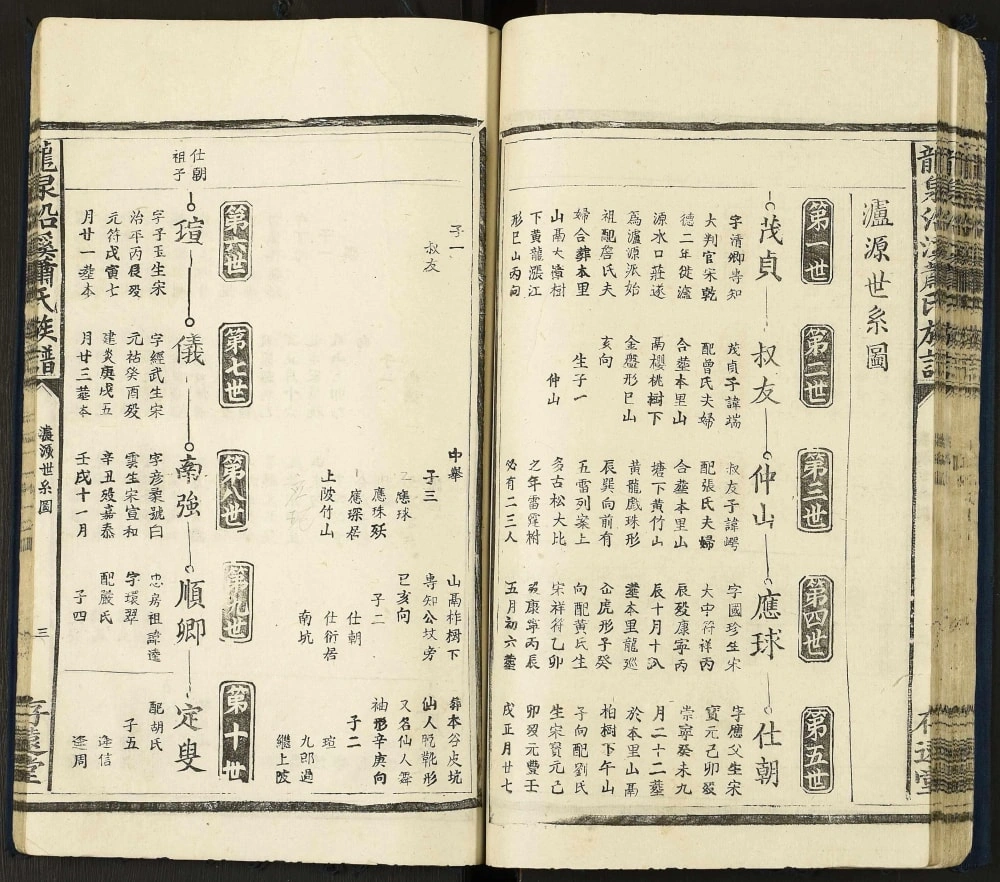 瀘源世系圖
第一世
茂貞
字清卿專知
大判官宋乾
德二年徙瀘
源水口莊遂
為瀘源派始
祖配詹氏夫
婦合葬本里
山鬲大漳樹
下黃龍漲江
形巳山丙向
子一
叔友
第二世
叔友
茂貞子諱端
配曾氏夫婦
合塟本里山
鬲櫻桃樹下
金盤形巳山
亥向
生子一
仲山
第三世
仲山
叔友子諱崿
配張氏夫婦
合塟本里山
塘下黃竹山
黃龍戲珠形
辰巽向前有
五雷列案上
多古松大比
之年雷霆樹
必有二三人
中舉
子三
應球
應珠歿
應琛居
上陂竹山
第四世
應球
字國珍生宋
大中符祥丙
辰歿康寧丙
辰十月十八
塟本里龍廵
仚虎形子癸
向配黃氏生
宋祥符乙卯
歿康寧丙辰
五月初六塟
山鬲柞樹下
專知公坟旁
巳亥向
子二
仕朝
仕衍居
南坑
第五世
仕朝
字應父生宋
寶元己卯歿
崇寧癸未九
月二十二塟
於本里山鬲
柏樹下午山
子向配劉氏
生宋寶元己
卯歿元豐壬
戌正月廿七
葬本谷皮坑
仙人脫靴形
又名仙人舞
袖形辛庚向
子二
瑄
九郎過
繼上陂
第六世
仕朝
祖子
瑄
字子玉生宋
治平丙辰歿
元符戊寅七
月廿一塟本
第七世
儀
字經武生宋
元祐癸酉歿
建炎庚戌五
月廿三塟本
第八世
南強
字彥柔號白
雲生宋宣和
辛丑歿嘉泰
壬戌十一月
第九世
順卿
忠房祖諱逵
字環翠
配嚴氏
子四
第十世
定叟
配胡氏
子五
逢信
逢周
龍泉沿溪蕭氏族譜
瀘源世系圖
三
存遠堂